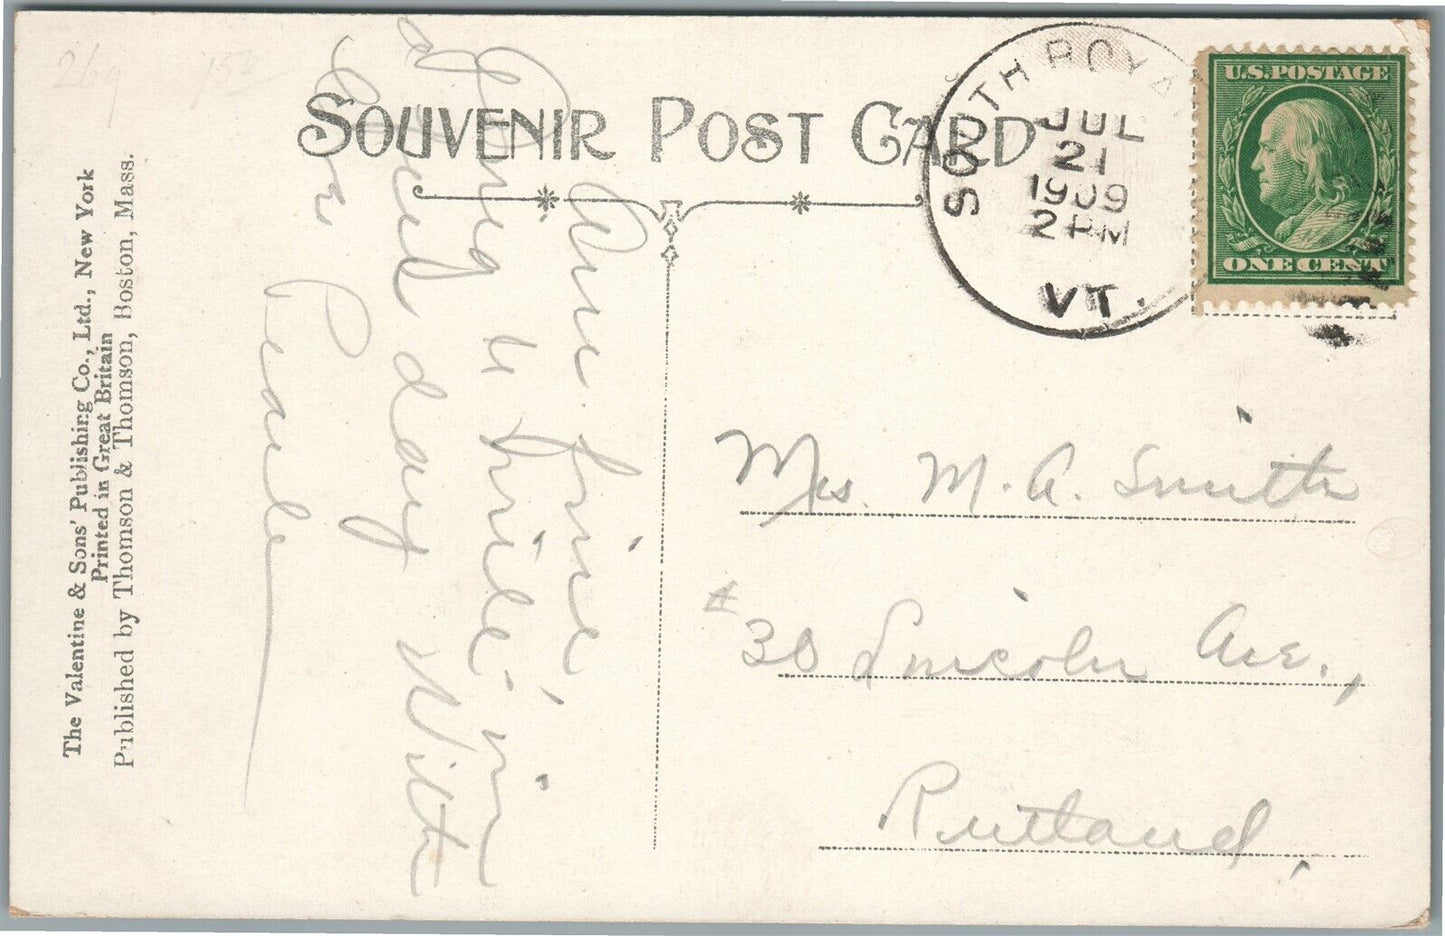 SOUVENIR POST CARD
SOUTH ROYA
JUL
21
1909
2 PM
VT.
U.S. POSTAGE
ONE CENT
The Valentine & Sons' Publishing Co., Ltd., New York
Printed in Great Britain
Published by Thomson & Thomson, Boston, Mass.
Am fine,
to in
day With
Pearle
Mrs. M. A. Smith
# 30 Lincoln Ave.,
Rutland,